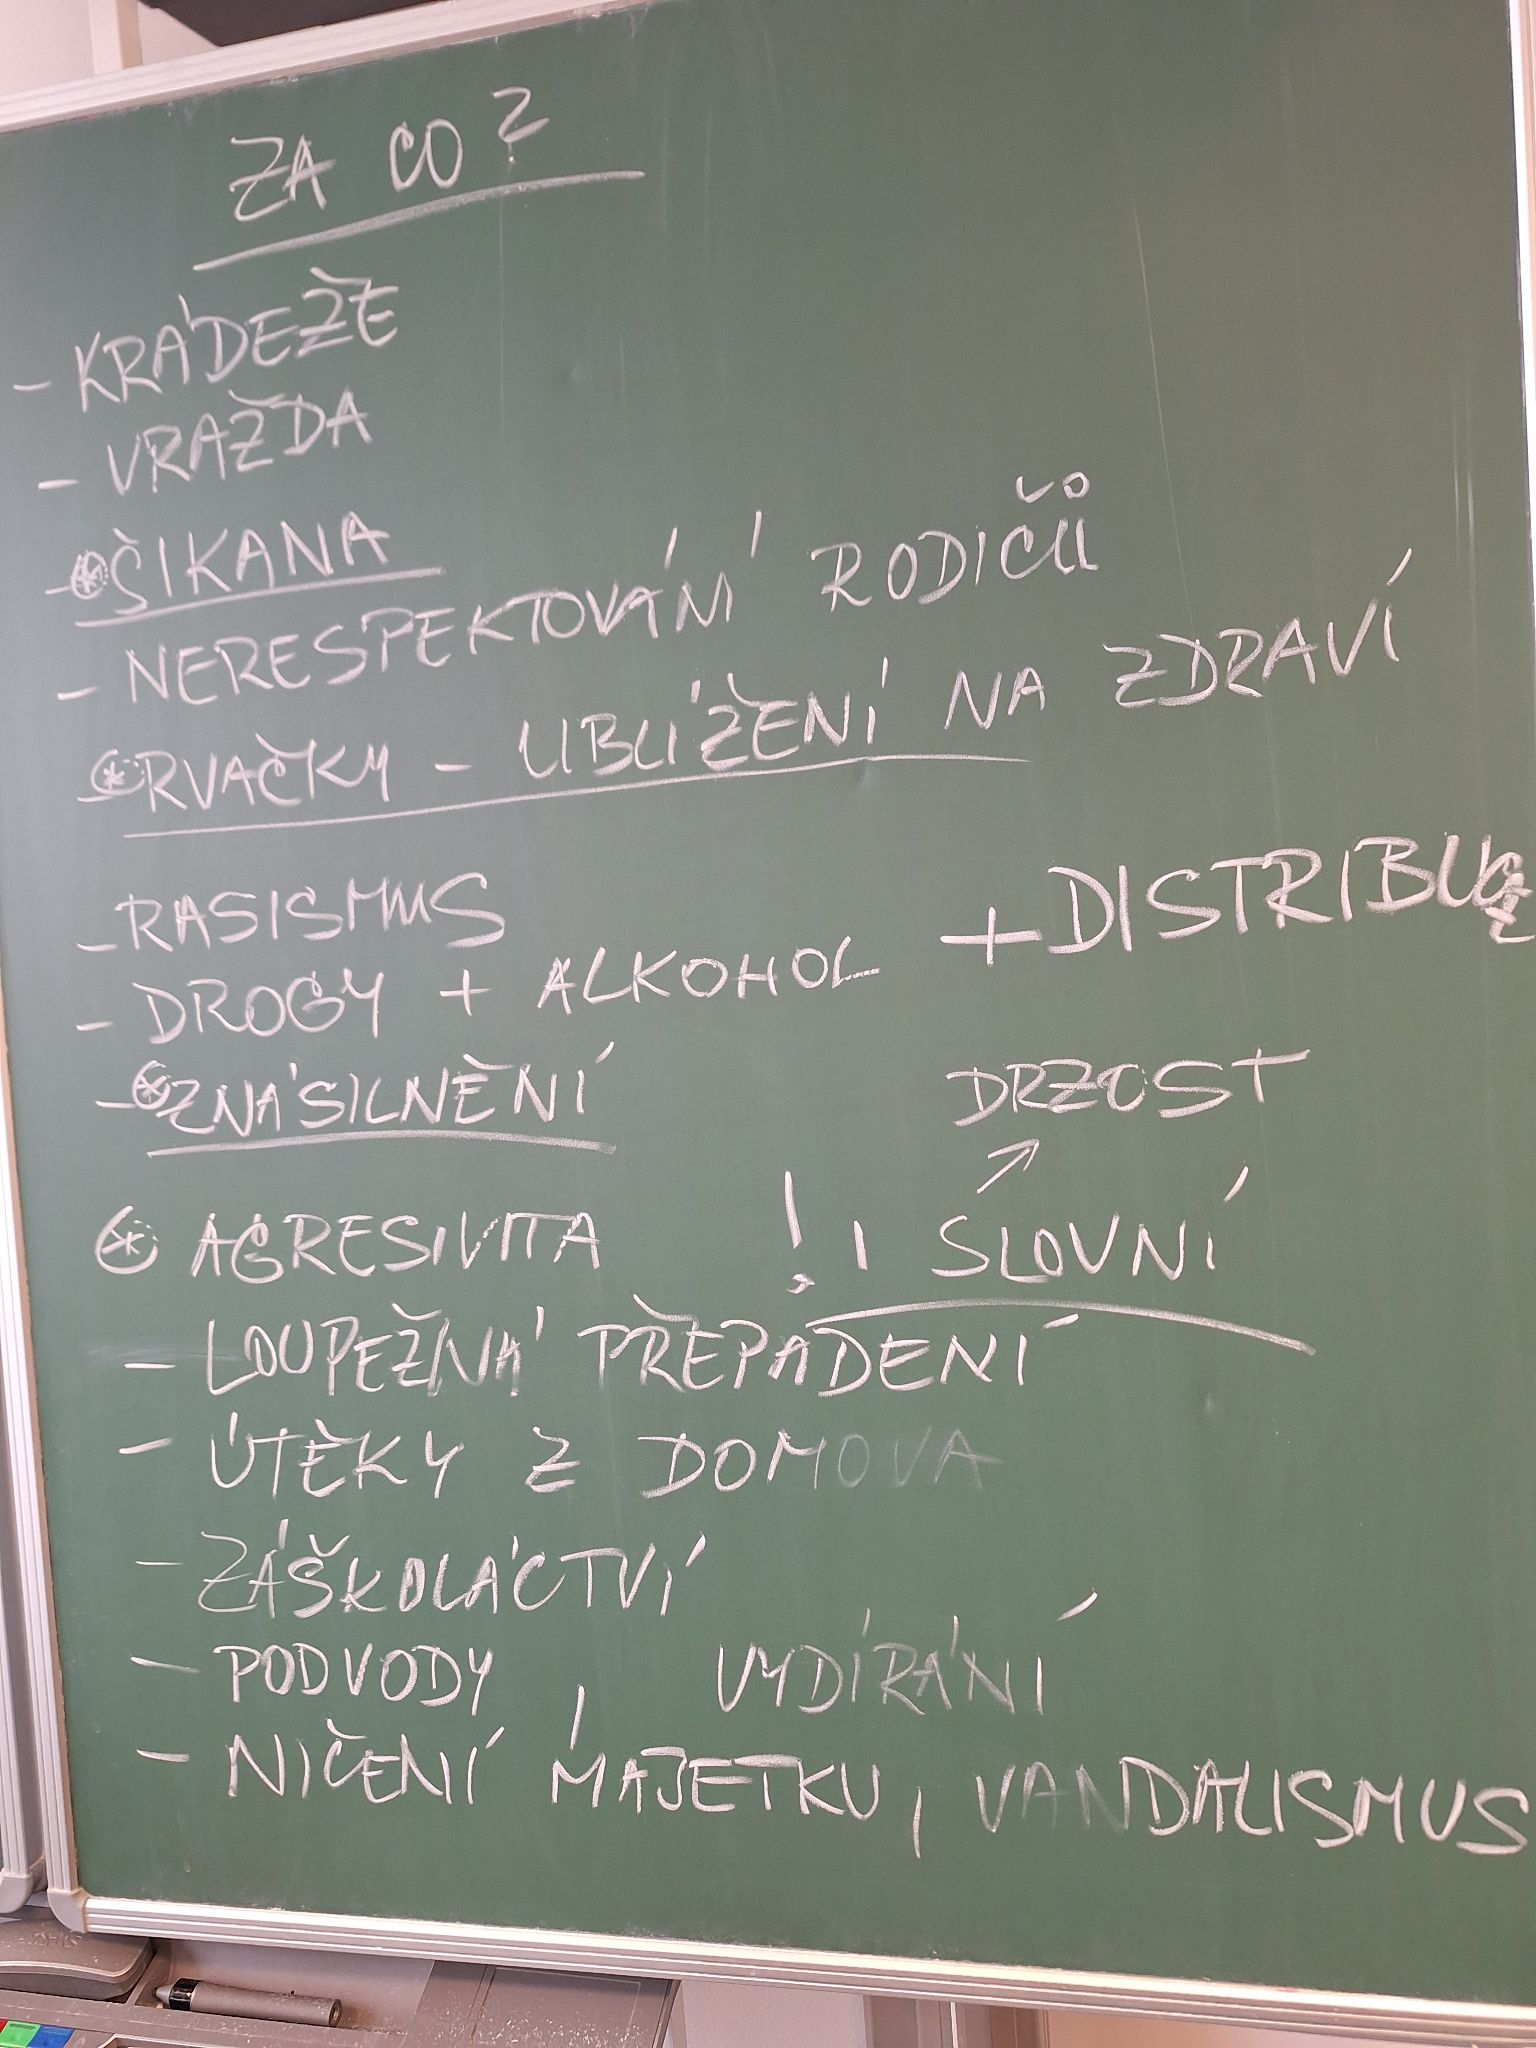 ZA CO?
- KRÁDEŽE
- VRAŽDA
- * ŠIKANA
- NERESPEKTOVÁNÍ RODIČŮ
- * RVAČKY - UBLÍŽENÍ NA ZDRAVÍ
- RASISMUS
- DROGY + ALKOHOL + DISTRIBUCE
- * ZNÁSILNĚNÍ
DRZOST
↗
* AGRESIVITA ! I SLOVNÍ
- LOUPEŽNÁ PŘEPADENÍ
- ÚTĚKY Z DOMOVA
- ZÁŠKOLÁCTVÍ
- PODVODY, VYDÍRÁNÍ
- NIČENÍ MAJETKU, VANDALISMUS